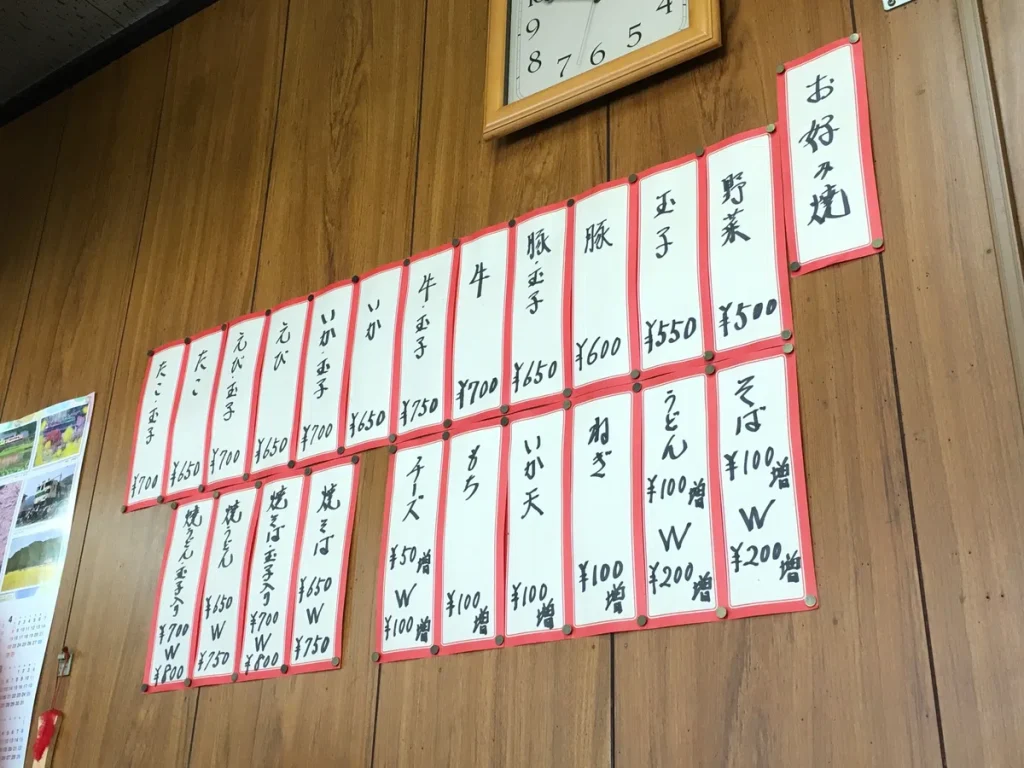 お好み焼
野菜 ¥500
玉子 ¥550
豚 ¥600
豚・玉子 ¥650
牛 ¥700
牛・玉子 ¥750
いか ¥650
いか・玉子 ¥700
えび ¥650
えび・玉子 ¥700
たこ ¥650
たこ・玉子 ¥700
そば ¥100増 W ¥200増
うどん ¥100増 W ¥200増
ねぎ ¥100増
いか天 ¥100増
もち ¥100増
チーズ ¥50増 W ¥100増
焼そば ¥650 W ¥750
焼そば・玉子入り ¥700 W ¥800
焼うどん ¥650 W ¥750
焼うどん・玉子入り ¥700 W ¥800
4
5
6
7
8
9
4